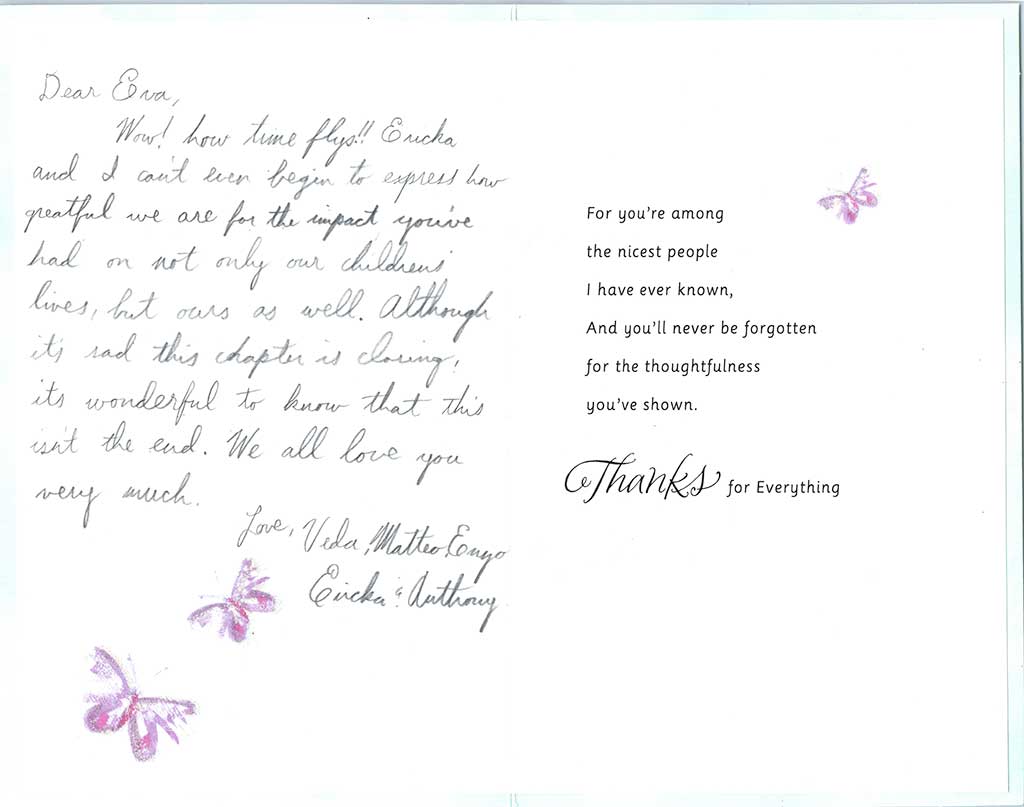 Dear Eva,
Wow! how time flys!! Ericka
and I can't even begin to express how
greatful we are for the impact you've
had on not only our childrens'
lives, but ours as well. Although
it's sad this chapter is closing,
its wonderful to know that this
isn't the end. We all love you
very much.
Love, Veda, Matteo, Enzo
Ericka & Anthony
For you're among
the nicest people
I have ever known,
And you'll never be forgotten
for the thoughtfulness
you've shown.
Thanks for Everything